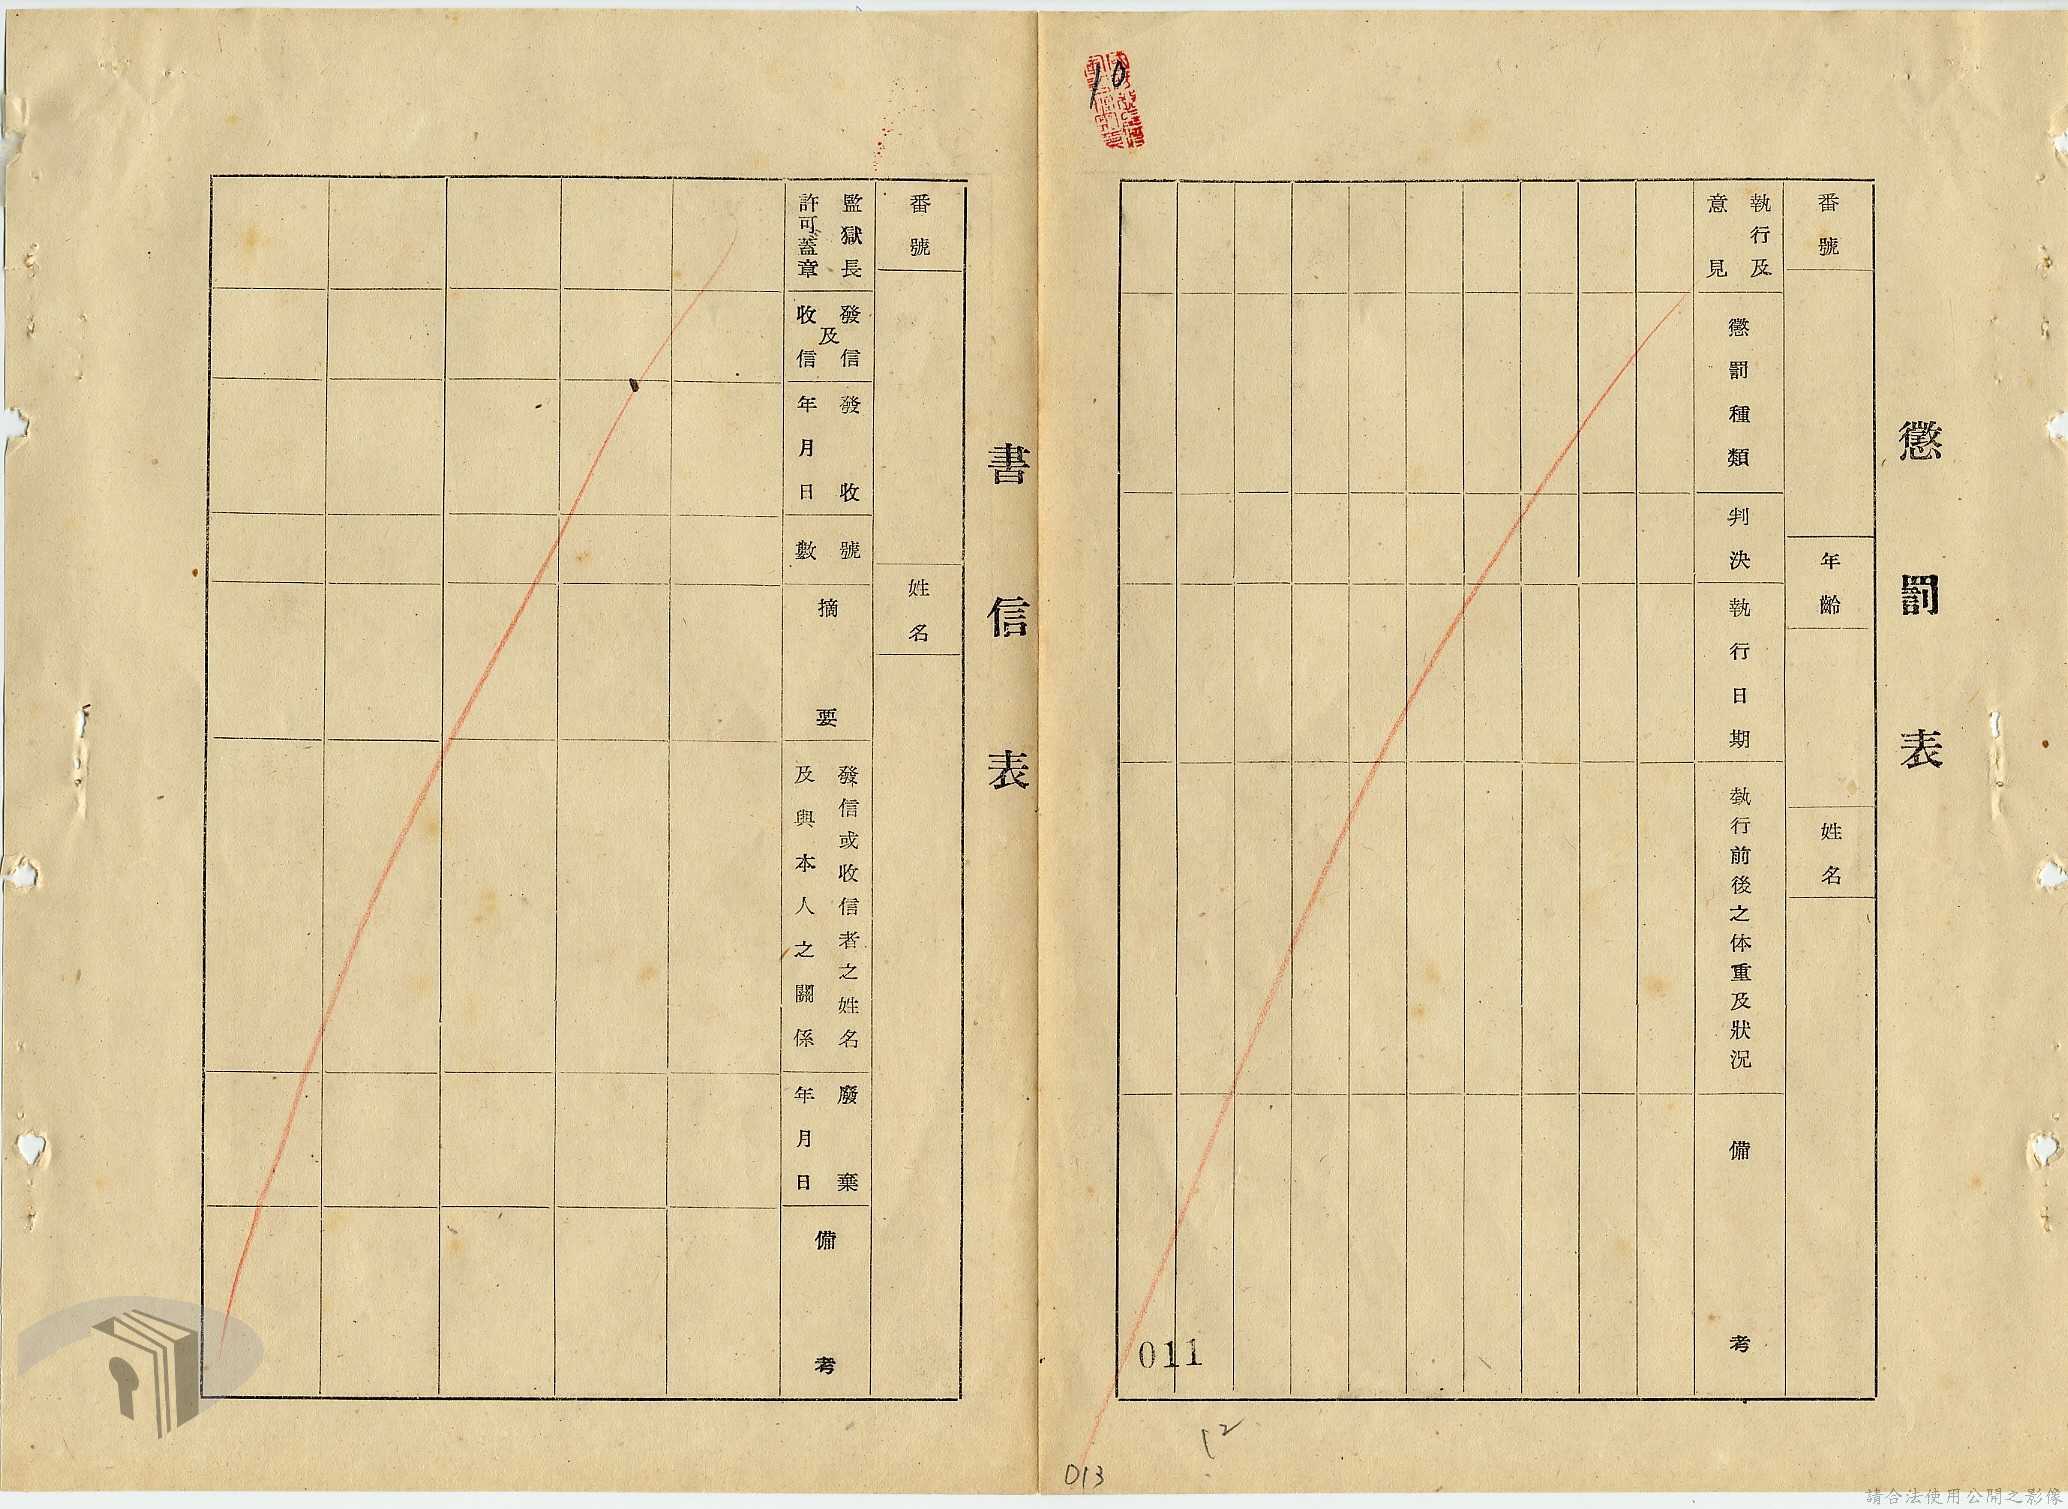 懲罰表
番號
年齡
姓名
執行及
意見
懲罰種類
判決
執行日期
執行前後之体重及狀況
備考
10
011
12
013
書信表
番號
姓名
監獄長
許可蓋章
發信
及
收信
發收
年月日
號數
摘要
發信或收信者之姓名
及與本人之關係
廢棄
年月日
備考
請合法使用公開之影像